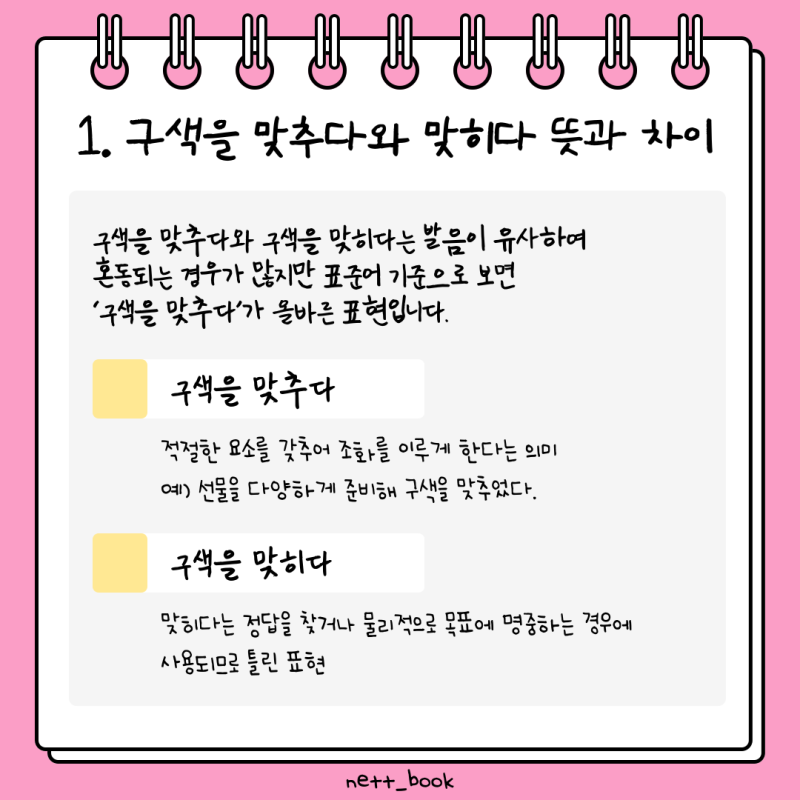 1. 구색을 맞추다와 맞히다 뜻과 차이
구색을 맞추다와 구색을 맞히다는 발음이 유사하여
혼동되는 경우가 많지만 표준어 기준으로 보면
'구색을 맞추다'가 올바른 표현입니다.
구색을 맞추다
적절한 요소를 갖추어 조화를 이루게 한다는 의미
예) 선물을 다양하게 준비해 구색을 맞추었다.
구색을 맞히다
맞히다는 정답을 찾거나 물리적으로 목표에 명중하는 경우에
사용되므로 틀린 표현
nett_book